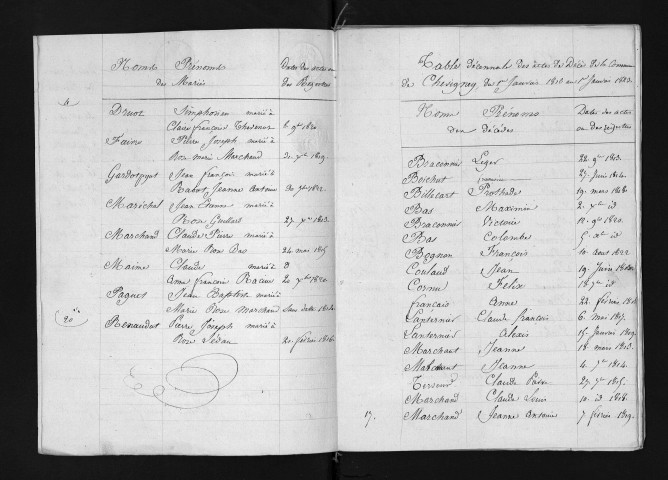 Noms Prénoms Dates des actes
des Mariés des Registres
4
Druot Simphorien marié à
Claire françoise 6 9bre 1820.
Faivre Pierre Joseph marié à
Rose marie Marchand 1819.
Jean françois marié à
Jeanne Antoine 1822.
Maréchal Jean Etienne marié à
Rose 27 1813.
Marchand Claude Pierre marié à
Marie Rose Bas 24 mai 1815
Maine Claude marié à
Anne françoise Racine 20 1820.
Paguet Jean Baptiste marié à
Marie Rose Marchand Sans date 1814.
20
Renaudot Pierre Joseph marié à
Rose Sedan 20. février 1816.
Table décennale des actes de Décès de la Commune
de du 1er Janvier 1813 au 1er Janvier 1823.
Noms Prénoms Dates des actes
des décédés ou des registres
Braconnier Léger 22. 9bre 1813.
Boichut 27. Juin 1814.
Billecart Prothade 19. mars 1818.
Bas Maximin 2. id
Braconnier Victoire 12. 9bre 1820.
Bas Colombe 5. id
Bognon François 10. aout 1822
Coulaud Jean 19. Juin
Cornu Félix id
français Anne 22. février
Lanternier Claude françois 6. mai 1817.
Lanternier Alexis 15. Janvier 1819.
Marchant Jeanne 18. mars 1813.
Marchant Jeanne 4. 1814.
Claude 27. 1815.
Marchand Claude Louis 10. id 1818.
17. Marchand Jeanne Antoine 7 février 1819.